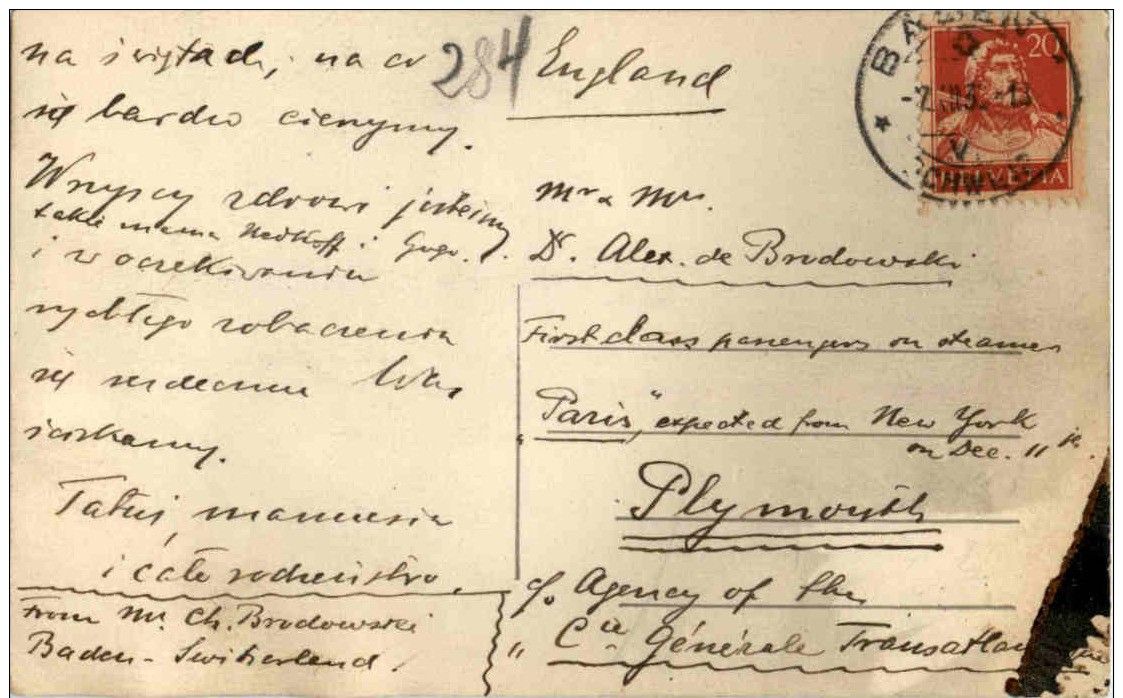 na świętach, na co
się bardzo cieszymy.
Wszyscy zdrowi jesteśmy
także mama Nedkoff i Gogo.
i w oczekiwaniu
rychłego zobaczenia
się serdecznie Was
ściskamy.
Tatuś, mamusia
i całe rodzeństwo.
From Mr. Ch. Brodowski
Baden - Switzerland!
284
England
Mr & Mrs.
Dr. Alex. de Brodowski
First class passengers on steamer
"Paris", expected from New York
on Dec. 11 th.
Plymouth
c/o Agency of the
" Cie Générale Transatlan
BADEN
20
HELVETIA